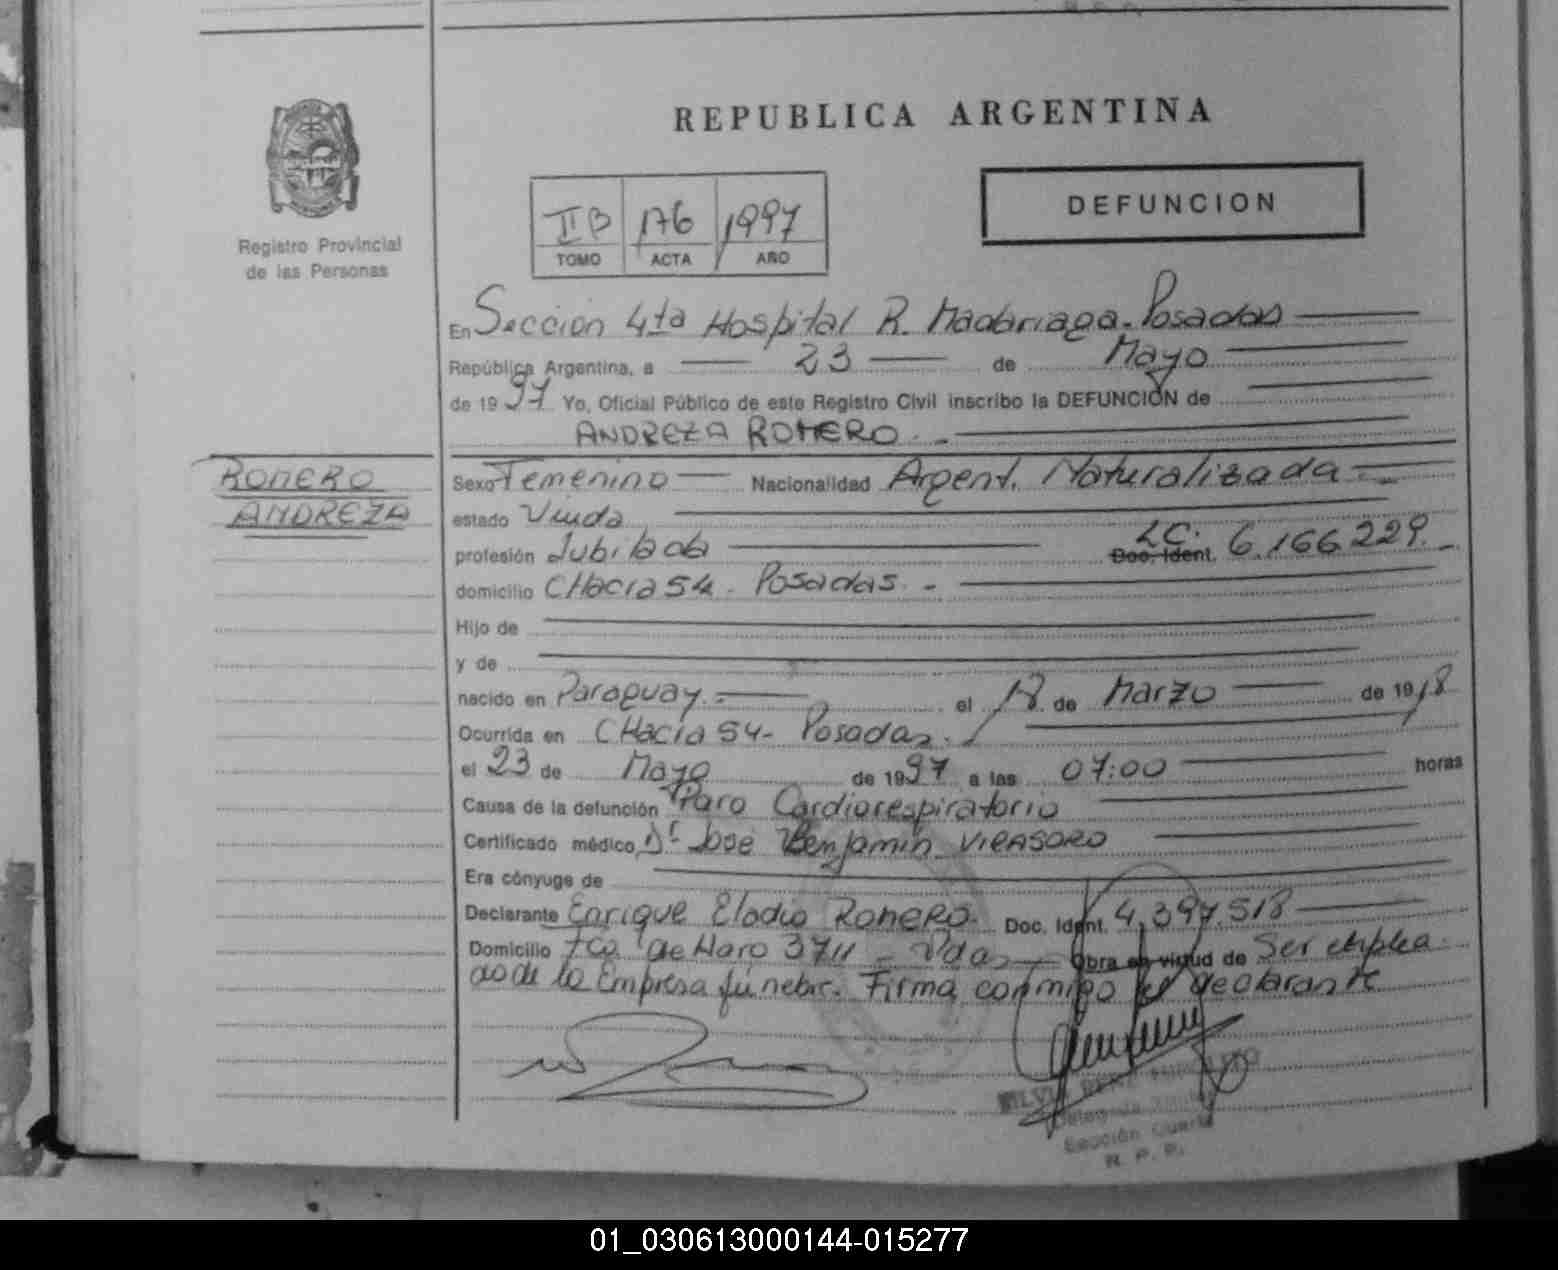 REPUBLICA ARGENTINA
Registro Provincial
de las Personas
II B 176 1997
TOMO ACTA AÑO
DEFUNCION
En Sección 4ta Hospital R. Madariaga - Posadas
República Argentina, a 23 de Mayo
de 1997 Yo, Oficial Público de este Registro Civil inscribo la DEFUNCIÓN de
ANDREZA ROMERO.-
ROMERO
ANDREZA
Sexo Femenino Nacionalidad Argent. Naturalizada
estado Viuda
profesión Jubilada L.C. Doc. Ident. 6.166.229.-
domicilio CHacra 54. Posadas.-
Hijo de
y de
nacido en Paraguay.- el 18 de Marzo de 1918
Ocurrida en CHacra 54- Posadas.
el 23 de Mayo de 1997 a las 07:00 horas
Causa de la defunción Paro Cardiorespiratorio
Certificado médico, Dr Jose Benjamin VIRASORO
Era cónyuge de
Declarante Enrique Eladio ROMERO. Doc. Ident. 4.397.518
Domicilio Fco. de Haro 3711 - Pdas Obra en virtud de Ser emplea
do de la Empresa fúnebre. Firma conmigo el declarante
Delegada
Sección Cuarta
R. P. P.
01_030613000144-015277